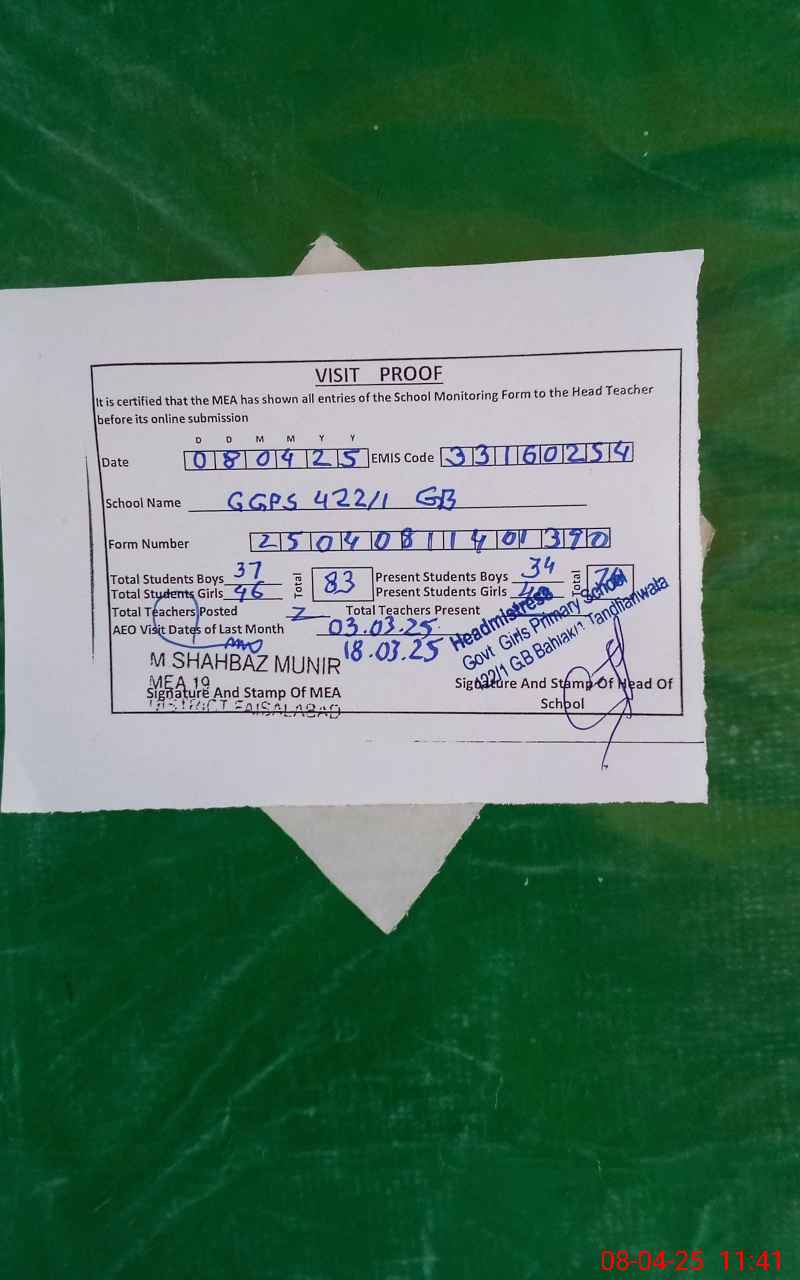 VISIT PROOF
It is certified that the MEA has shown all entries of the School Monitoring Form to the Head Teacher
before its online submission
D D M M Y Y
Date 080425 EMIS Code 33160254
School Name GGPS 422/1 GB
Form Number 25040811401390
Total Students Boys 37 Total 83 Present Students Boys 34 Total
Total Students Girls 46 Present Students Girls
Total Teachers Posted 2 Total Teachers Present
AEO Visit Dates of Last Month 03.03.25
18.03.25
Headmistress
Govt Girls Primary School
422/1 G.B Tandlianwala
M SHAHBAZ MUNIR
MEA 19
Signature And Stamp Of MEA
DISTRICT FAISALABAD
Signature And Stamp Of Head Of
School
08-04-25 11:41